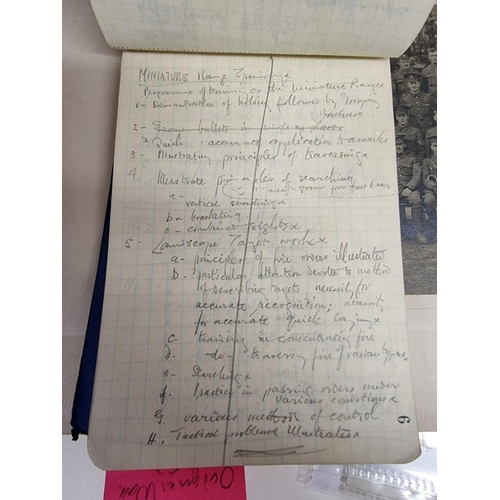 MINIATURE Range Training x
Programme of training on the Miniature Range
1 - Demonstration of holding followed by Grouping
Practices x
2 - Group bullets in single places
Quick accurate application to a mark x
3 - Illustrating principles of traversing x
4. Illustrate principles of searching
a - vertical searching x
b - bracketing
c - combined sights x
5 - Landscape Target work x
a - principles of fire orders illustrated
b - particular attention devoted to method
of describing targets necessity for
accurate recognition; necessity
for accurate quick laying x
c - training in concentrating fire
d. - do - traversing fire of various types.
e - Searching x
f. Practice in passing orders under
various conditions x
G various methods of control
H. Tactical problems illustrated x
6
Original Work